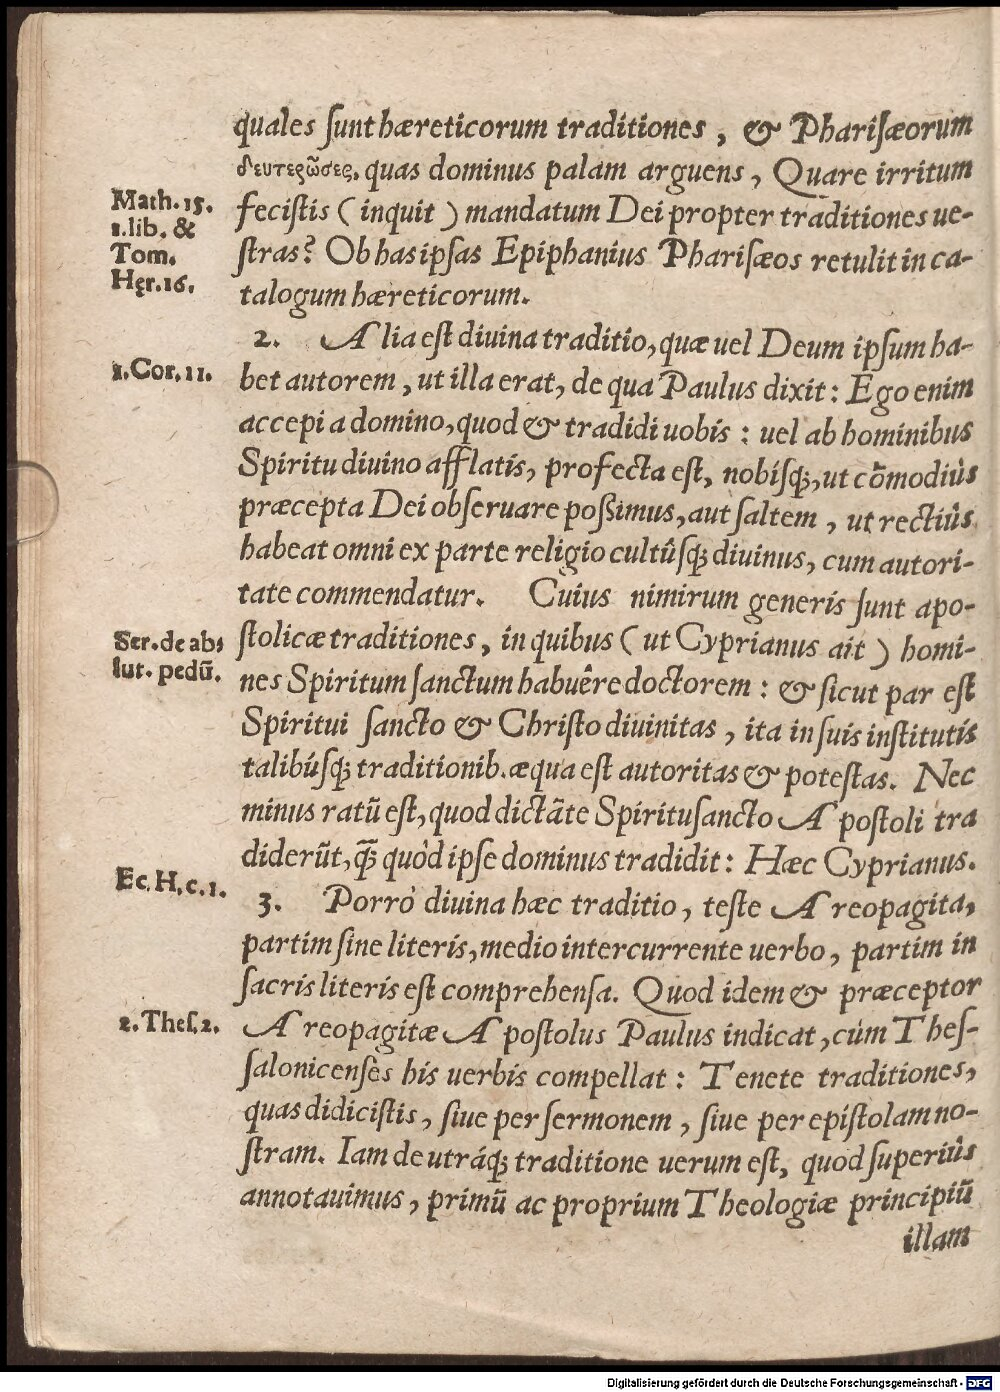 quales sunt hæreticorum traditiones, & Pharisæorum
δευτερῶσες, quas dominus palam arguens, Quare irritum
Math. 15.
fecistis (inquit) mandatum Dei propter traditiones ue-
1. lib. &
Tom.
stras? Ob has ipsas Epiphanius Pharisæos retulit in ca-
Hęr. 16.
talogum hæreticorum.
2. Alia est diuina traditio, quæ uel Deum ipsum ha-
1. Cor. 11.
bet autorem, ut illa erat, de qua Paulus dixit: Ego enim
accepi a domino, quod & tradidi uobis: uel ab hominibus
Spiritu diuino afflatis, profecta est, nobisq;, ut cõmodiùs
præcepta Dei obseruare possimus, aut saltem, ut rectiùs
habeat omni ex parte religio cultûsq; diuinus, cum autori-
tate commendatur. Cuius nimirum generis sunt apo-
Ser. de ab,
stolicæ traditiones, in quibus (ut Cyprianus ait) homi-
lut. pedũ.
nes Spiritum sanctum habuêre doctorem: & sicut par est
Spiritui sancto & Christo diuinitas, ita in suis institutis
talibúsq; traditionib. æqua est autoritas & potestas. Nec
minus ratũ est, quod dictãte Spiritusancto Apostoli tra
diderũt, q̃ quòd ipse dominus tradidit: Hæc Cyprianus.
Ec. H. c. 1.
3. Porrò diuina hæc traditio, teste Areopagita,
partim sine literis, medio intercurrente uerbo, partim in
sacris literis est comprehensa. Quod idem & præceptor
2. Thes. 2.
Areopagitæ Apostolus Paulus indicat, cùm Thes-
salonicensès his uerbis compellat: Tenete traditiones,
quas didicistis, siue per sermonem, siue per epistolam no-
stram. Iam de utráq; traditione uerum est, quod superiùs
annotauimus, primũ ac proprium Theologiæ principiũ
illam
Digitalisierung gefördert durch die Deutsche Forschungsgemeinschaft - DFG